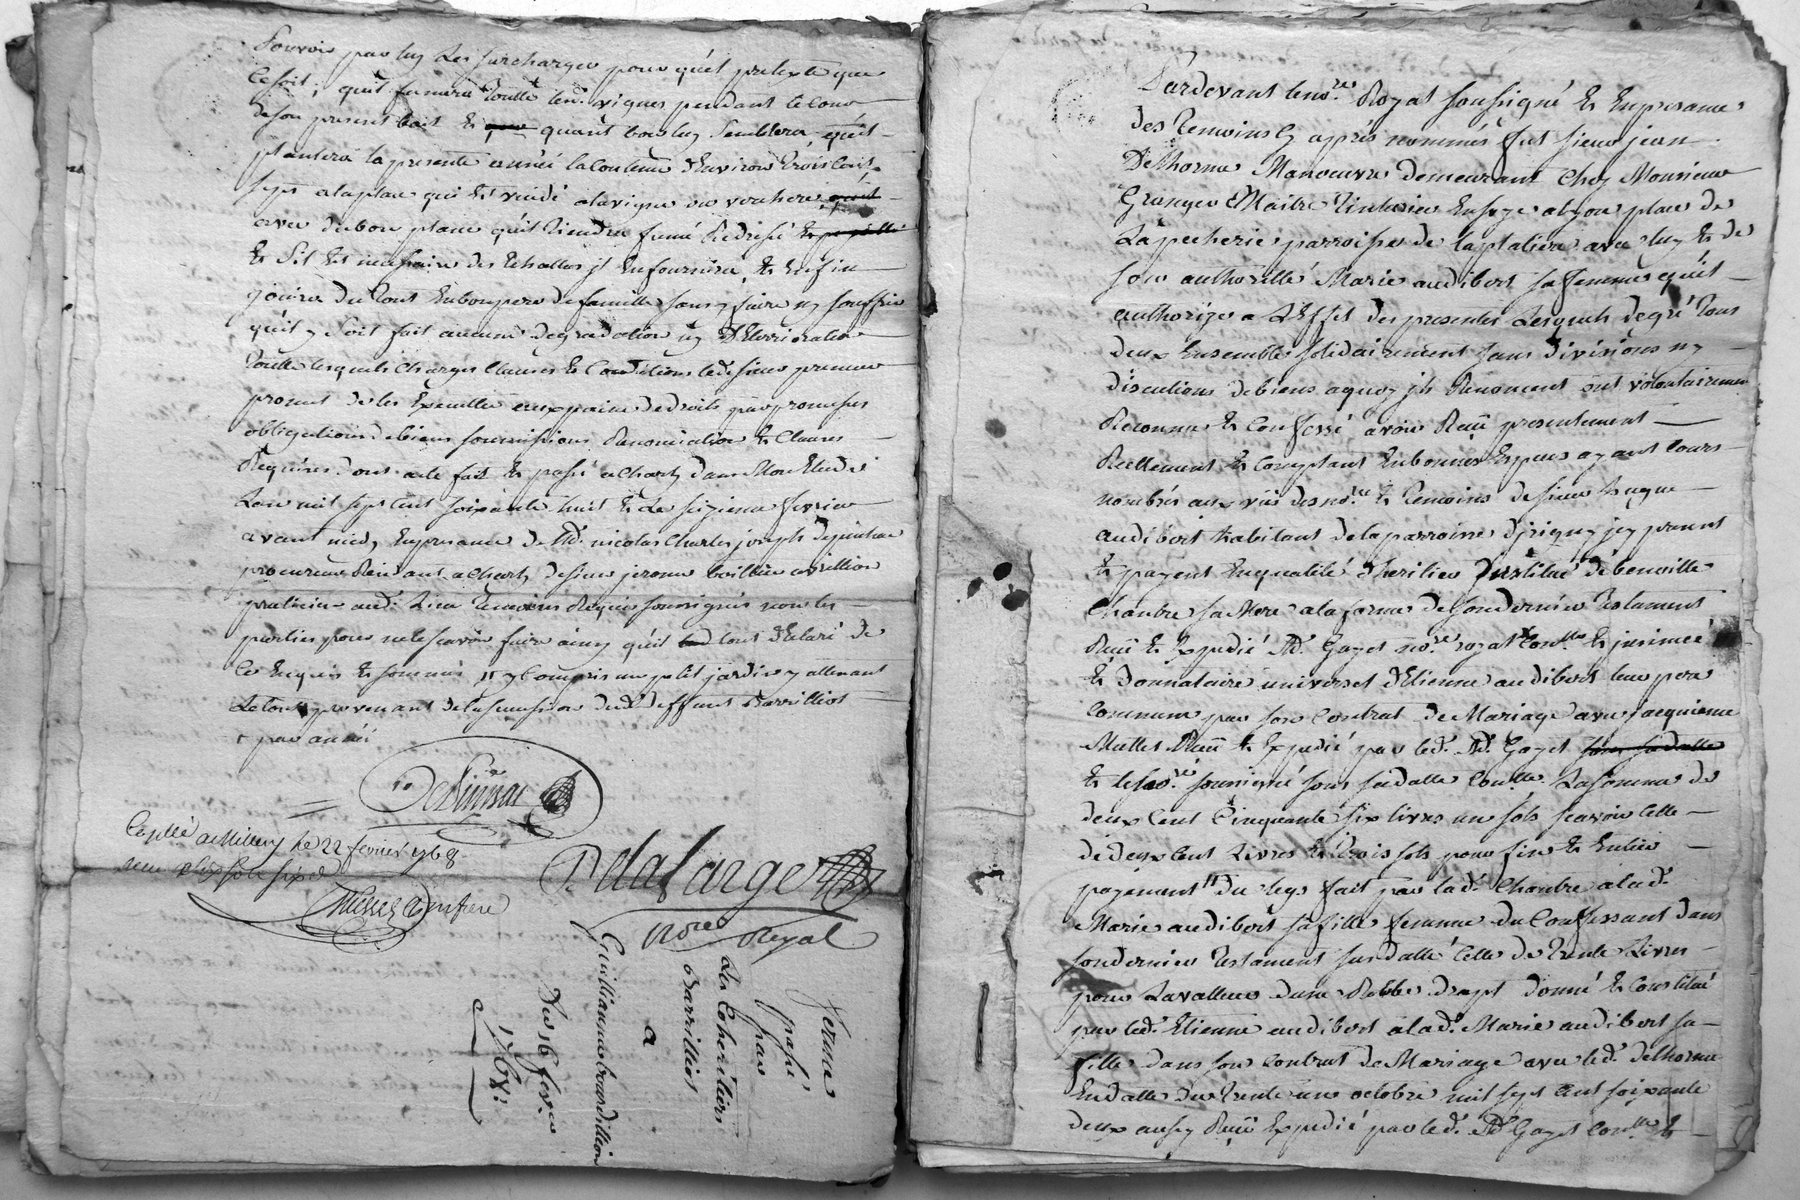 Pouvoir par luy Les surcharger pour quel pretexte que
Ce soit; quil fumera toutte lesd. vignes pendant le Cour
de son present bail Et quant bon luy Semblera quil
plantera la presente année la Contenue d'Environ trois Cent
seps a la place qui Est vuidé a la vigne
avec du bon plant quil tiendra fumé
Et Sil Est necessaire des Echallas il En fournira, Et Enfin
jouira du tout En bon pere de famille sans y faire ny souffrir
quil y Soit fait aucune degradation ny Deterioration
toutte lesquels Charges Clauses Et Conditions ledt sieur preneur
promet de les Executter aux peine de droits par promesses
obligations de biens soumissions Renonciation Et Clauses
Requises dont acte fait Et passé a Charly dans Mon Etude
Lan mil sept cent soixante huit Et Le seizieme fevrier
avant midy En presence de Me. nicolas Charles joseph Depinture
procureur Residant a Charly De sieur jerome
praticien audt. Lieu temoins Requis soussignés non les
parties pour ne le scavoir faire ainsy quil ont declaré de
Ce Enquis Et sommés y Compris un petit jardin y attenant
Le tout provenant de la succession dudt deffunt Barrilliot
+ par année
Controllé a Millery le 22 fevrier 1768
Reçu
Delafarge
Nore Royal
Ferme
passé
par
Les Coheritiers
Barrilliot
a
Guilliaume bourdillion
Du 16 fevr.
1768.
Pardevant le nore. Royal soussigné Et En presence
des temoins Cy après nommés fut sieur jean
Delhorme Manoeuvre demeurant Chez Monsieur
Granger Maitre teinturier En soye a Lyon place de
La pecherie parroisse de la platiere avec luy Et de
son authorité Marie audibert sa femme quil
authorize a L'Effet des presentes Lesquels de gré tous
deux Ensemble solidairement sans divisions ny
discutions de biens a quoy ils Renoncent ont volontairement
Reconnu Et Confessé avoir Reçu presentement
Reellement Et Comptant En bonnes Especes ayant Cours
nombrés aux vuë desd nore. Et temoins de sieur hugue
audibert habitant de la parroisse d'irigny icy present
Et payent En qualité d'heritier Institué de benoitte
Chambre sa Mere a la forme de son dernier testament
Reçu Et Expedié Me. Gayet nore. royal Conlle. Et insinué
Et donnataire universel d'Etienne audibert leur pere
Commun par son Contrat de Mariage avec jacquieme
Mallet Reçu Et Expedié par ledt. Me. Gayet
Et le nore. soussigné sous sa datte Conlle. La somme de
deux Cent Cinquante six livres un sols scavoir Celle
de deux Cent Livres Et trois sols pour fin Et Entier
payement du legs fait par lad. Chambre a lad.
Marie audibert sa fille femme du Confessant dans
son dernier testament susdatté Celle de trente Livres
pour La valleur d'une Robbe drapt donné Et Constitué
par ledt. Etienne audibert a lad. Marie audibert sa
fille dans son Contrat de Mariage avec ledt. delhorme
En datte du trente un octobre mil sept Cent soixante
deux aussy Reçu Expedié par ledt. Me Gayet Conlle Et